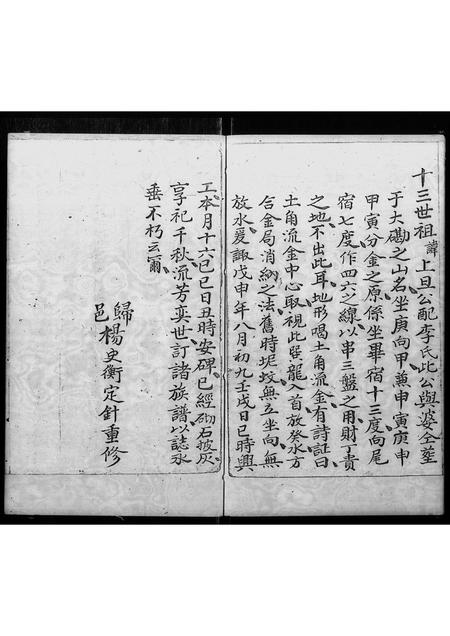 十三世祖諱上旦公配李氏此公與婆仝塟
于大磡之山名坐庚向甲兼申寅庚申
甲寅分金之原係坐畢宿十三度向尾
宿七度作四六之線以串三盤之用財丁貴
之地不出此耳地形喝土角流金有詩証曰
土角流金中心取視此巽龍入首放癸水方
合金局消納之法舊時坭坟無立坐向無
放水爰諏戊申年八月初九壬戌日巳時興
工本月十六己巳日丑時安碑已經砌石披灰
享祀千秋流芳奕世訂諸族譜以誌永
垂不朽云爾
歸邑楊史衡定針重修